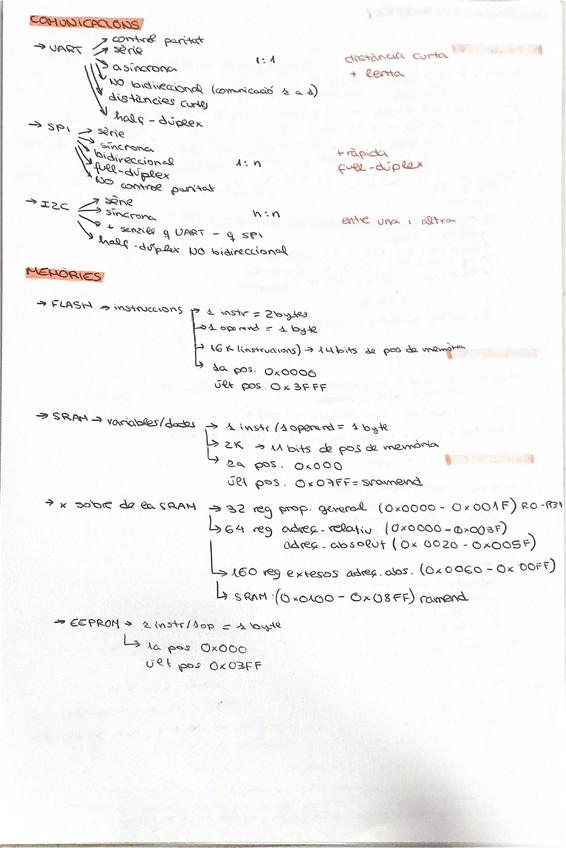 COMUNICACIONS
→ UART → control paritat
→ sèrie
asíncrona 1:1 distància curta
NO bidireccional (comunicació 1 a 1) + lenta
distàncies curtes
half-dúplex
→ SPI → sèrie
síncrona + ràpida
bidireccional 1:n full-dúplex
full-dúplex
NO control paritat
→ I2C → sèrie
síncrona n:n entre una i altra
+ senzill q UART - q SPI
half-dúplex NO bidireccional
MEMÒRIES
→ FLASH → instruccions → 1 instr = 2 bytes
→ 1 operand = 1 byte
→ 16K (instruccions) → 14 bits de pos de memòria
→ 1a pos. 0x0000
últ pos. 0x3FFF
→ SRAM → variables/dades → 1 instr/1 operand = 1 byte
→ 2K → 11 bits de pos de memòria
→ 1a pos. 0x000
últ pos. 0x07FF = sramend
→ x sobre de la SRAM → 32 reg prop. general (0x0000 - 0x001F) R0-R31
→ 64 reg adreç. relatiu (0x0000 - 0x003F)
adreç. absolut (0x0020 - 0x005F)
→ 160 reg extesos adreç. abs. (0x0060 - 0x00FF)
→ SRAM (0x0100 - 0x08FF) ramend
→ EEPROM → 1 instr/1op = 1 byte
→ 1a pos 0x000
últ pos 0x03FF